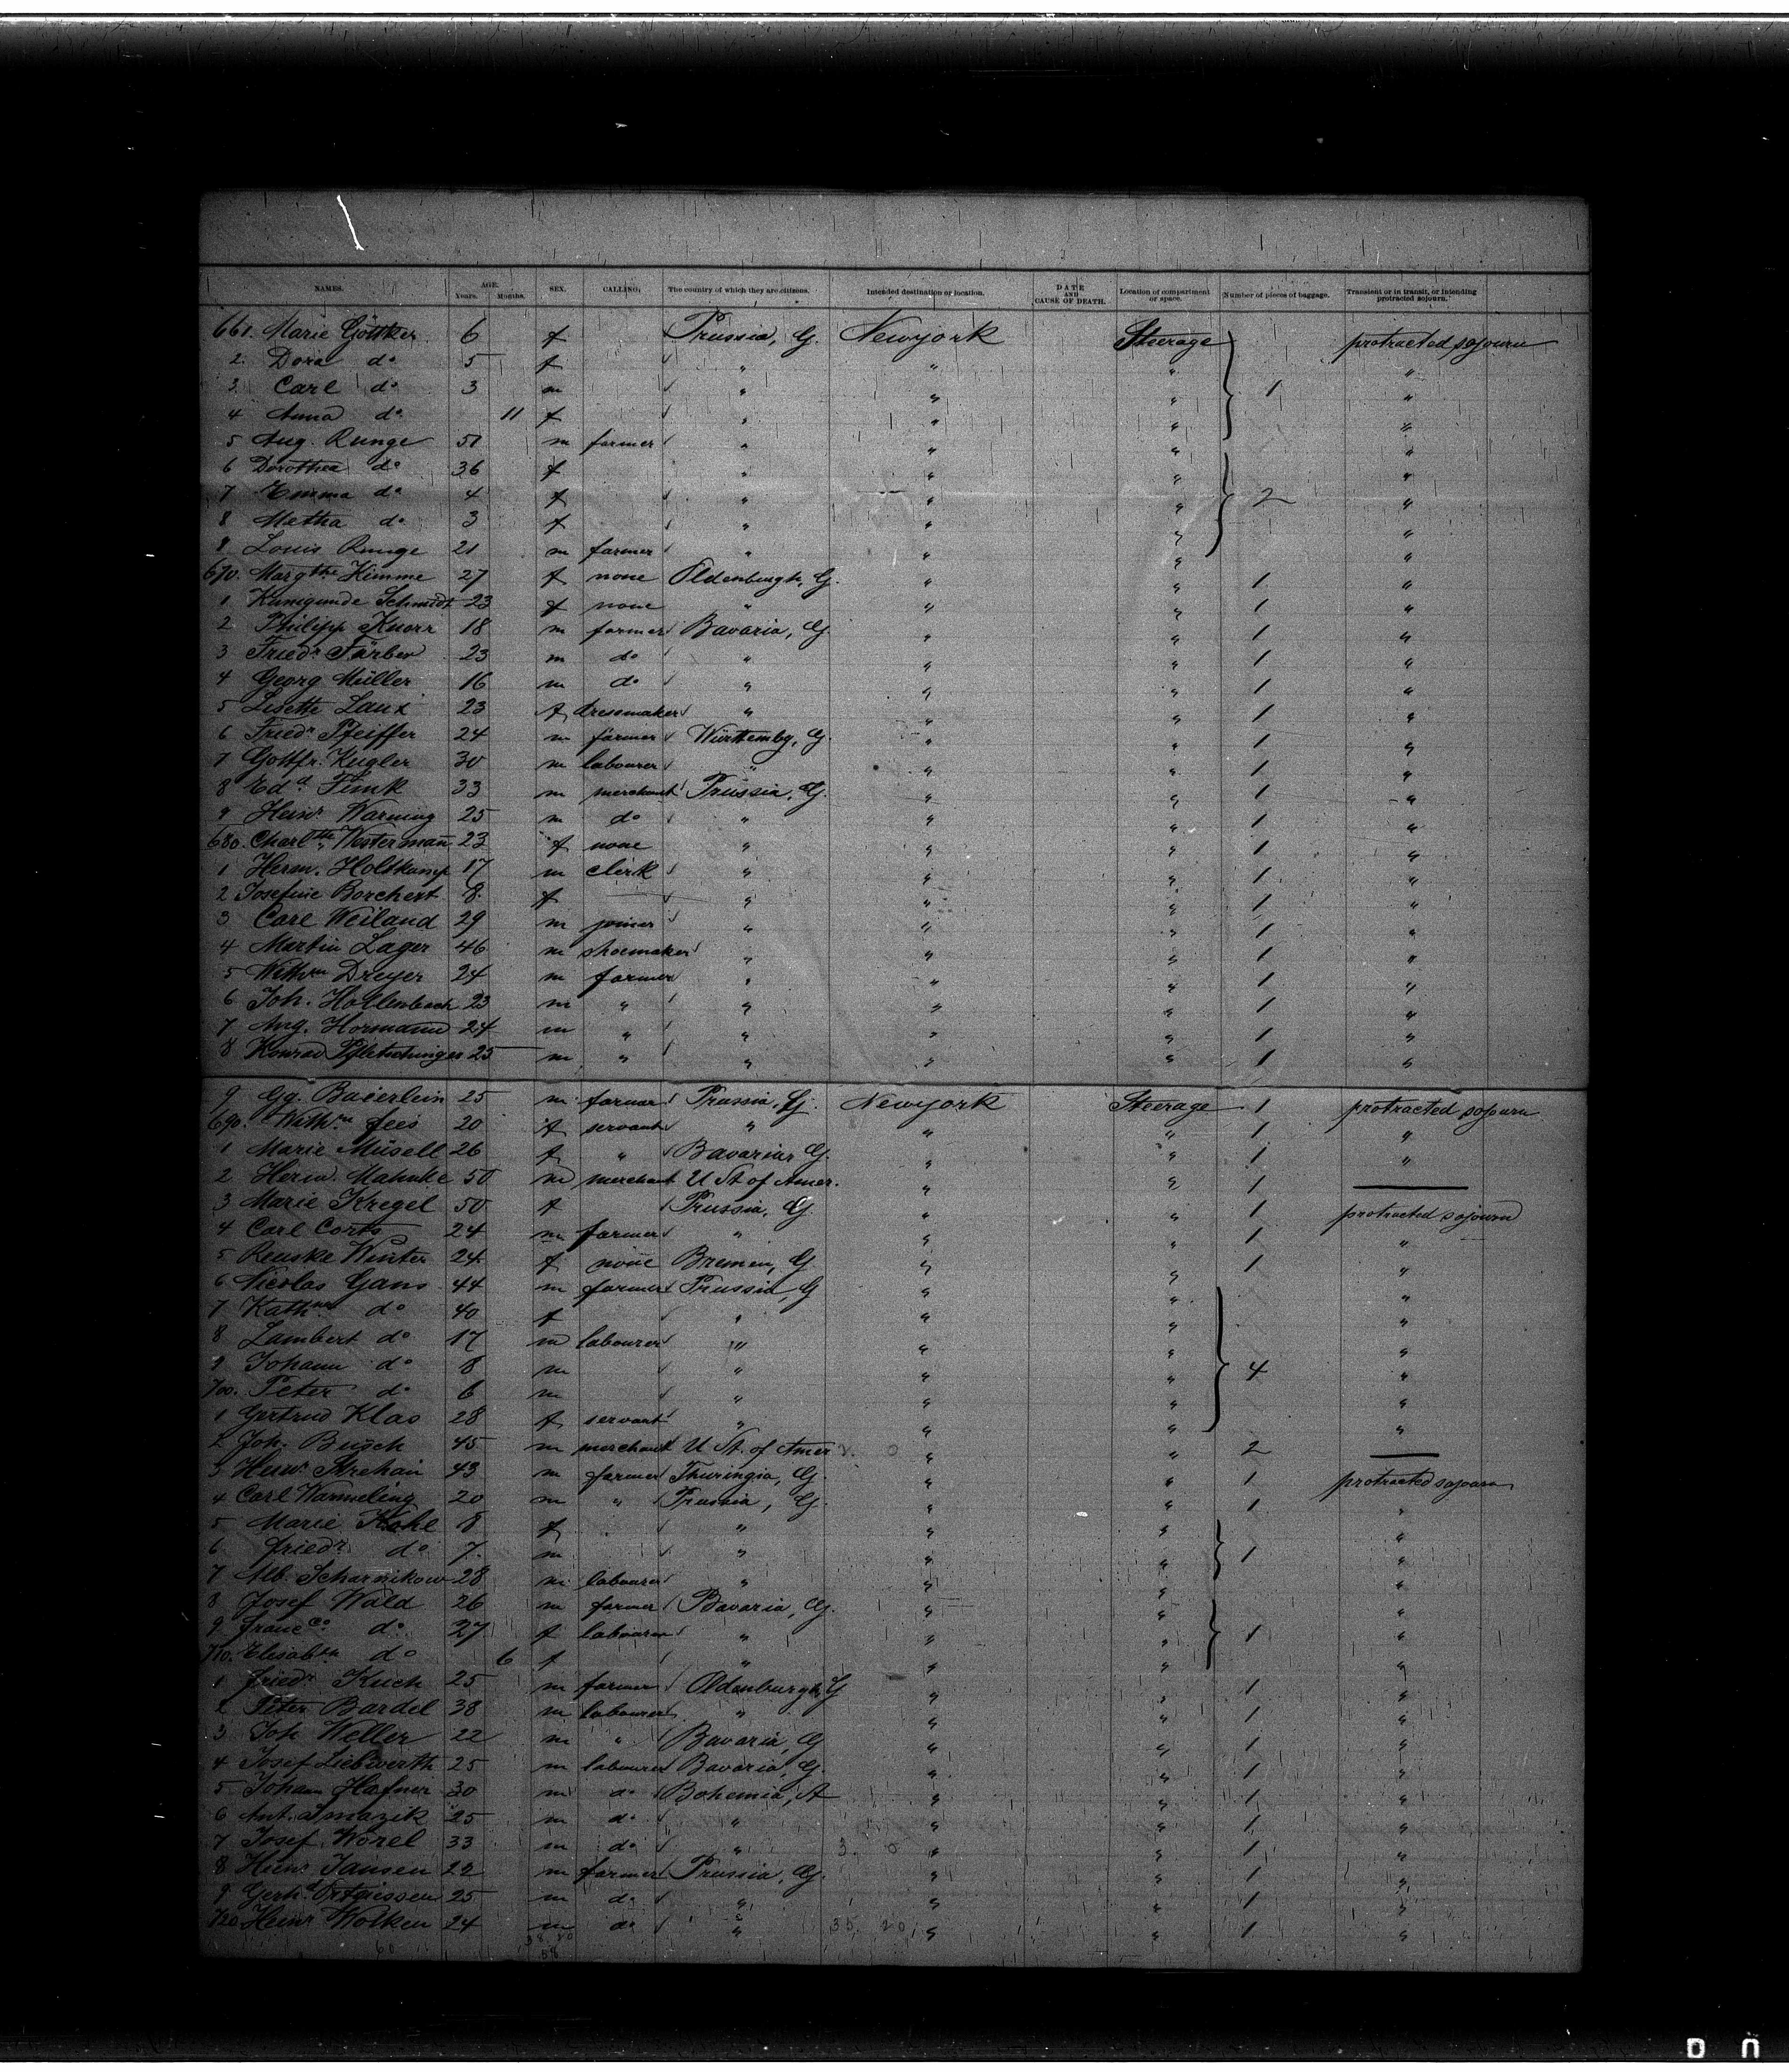 NAMES. AGE. Years. Months. SEX. CALLING. The country of which they are citizens. Intended destination or location. DATE AND CAUSE OF DEATH. Location of compartment or space. Number of pieces of baggage. Transient or in transit, or intending protracted sojourn.
661. Marie Göttker 6 f Prussia, G. Newyork Steerage protracted sojourn
2. Dora do 5 f " " " "
3. Carl do 3 m " " " 1 "
4 Anna do 11 f " " " "
5 Aug. Runge 51 m farmer " " " "
6 Dorothea do 36 f " " " "
7 Emma do 4 f " " " 2 "
8 Metha do 3 f " " " "
9 Louis Runge 21 m farmer " " " "
670. Margthe Kimme 27 f none Oldenburgh, G. " " 1 "
1 Kunigunde Schmidt 23 f none " " " 1 "
2 Philipp Knorr 18 m farmer Bavaria, G. " " 1 "
3 Friedr. Färber 23 m do " " " 1 "
4 Georg Müller 16 m do " " " 1 "
5 Lisette Laux 23 f dressmaker " " " 1 "
6 Friedr. Pfeiffer 24 m farmer Württembg, G. " " 1 "
7 Gottfr. Kugler 30 m labourer " " " 1 "
8 Edd. Fink 33 m merchant Prussia, G. " " 1 "
9 Heinr. Warning 25 m do " " " 1 "
680. Charltte Westermañ 23 f none " " " 1 "
1 Herm. Holtkamp 17 m clerk " " " 1 "
2 Josefine Borchert 8 f " " " 1 "
3 Carl Weiland 29 m joiner " " " 1 "
4 Martin Lager 46 m shoemaker " " " 1 "
5 Wilhm Dreyer 24 m farmer " " " 1 "
6 Joh. Hollenbach 23 m " " " " 1 "
7 Aug. Hormann 24 m " " " " 1 "
8 Konrad 25 m " " " " 1 "
9 Gg. Baierlein 25 m farmer Prussia, G. Newyork Steerage 1 protracted sojourn
690. Fees 20 f servant " " " 1 "
1 Marie Müsell 26 f " Bavaria, G. " " 1 "
2 Herm. Mahnke 50 m merchant U St. of Amer. " " 1
3 Marie Kregel 50 f Prussia, G. " " 1 protracted sojourn
4 Carl Corts 24 m farmer " " " 1 "
5 Renska Winter 24 f none Bremen, G. " " 1 "
6 Nicolas Gans 44 m farmer Prussia, G " " "
7 Kathne do 40 f " " " "
8 Lambert do 17 m labourer " " " "
9 Johann do 8 m " " " 4 "
700. Peter do 6 m " " " "
1 Gertrud Klas 28 f servant " " " "
2 Joh. Busch 45 m merchant U St. of Amer " " 2
3 Heinr. 43 m farmer Thuringia, G. " " 1 protracted sojourn
4 Carl Warmeling 20 m " Prussia, G. " " 1 "
5 Marie Kohl 8 f " " " "
6 Friedr. do 7 m " " " 1 "
7 Alb. Scharnikow 28 m labourer " " " "
8 Josef Wald 26 m farmer Bavaria, G. " " "
9 Franc do 27 f labourer " " " 1 "
710. Elisabth do 6 f " " " "
1 Friedr. Kuch 25 m farmer Oldenburgh, G " " 1 "
2 Peter Bardel 38 m labourer " " " 1 "
3 Joh Weller 22 m " Bavaria, G " " 1 "
4 Josef Liebwerth 25 m labourer Bavaria, G. " " 1 "
5 Johann Hafner 30 m do Bohemia, A " " 1 "
6 Ant. Smazik 25 m do " " " 1 "
7 Josef Worel 33 m do " " " 1 "
8 Heinr. Jansen 22 m farmer Prussia, G. " " 1 "
9 Gerhd. 25 m do " " " 1 "
720 Heinr. Wolken 24 m do " " " 1 "